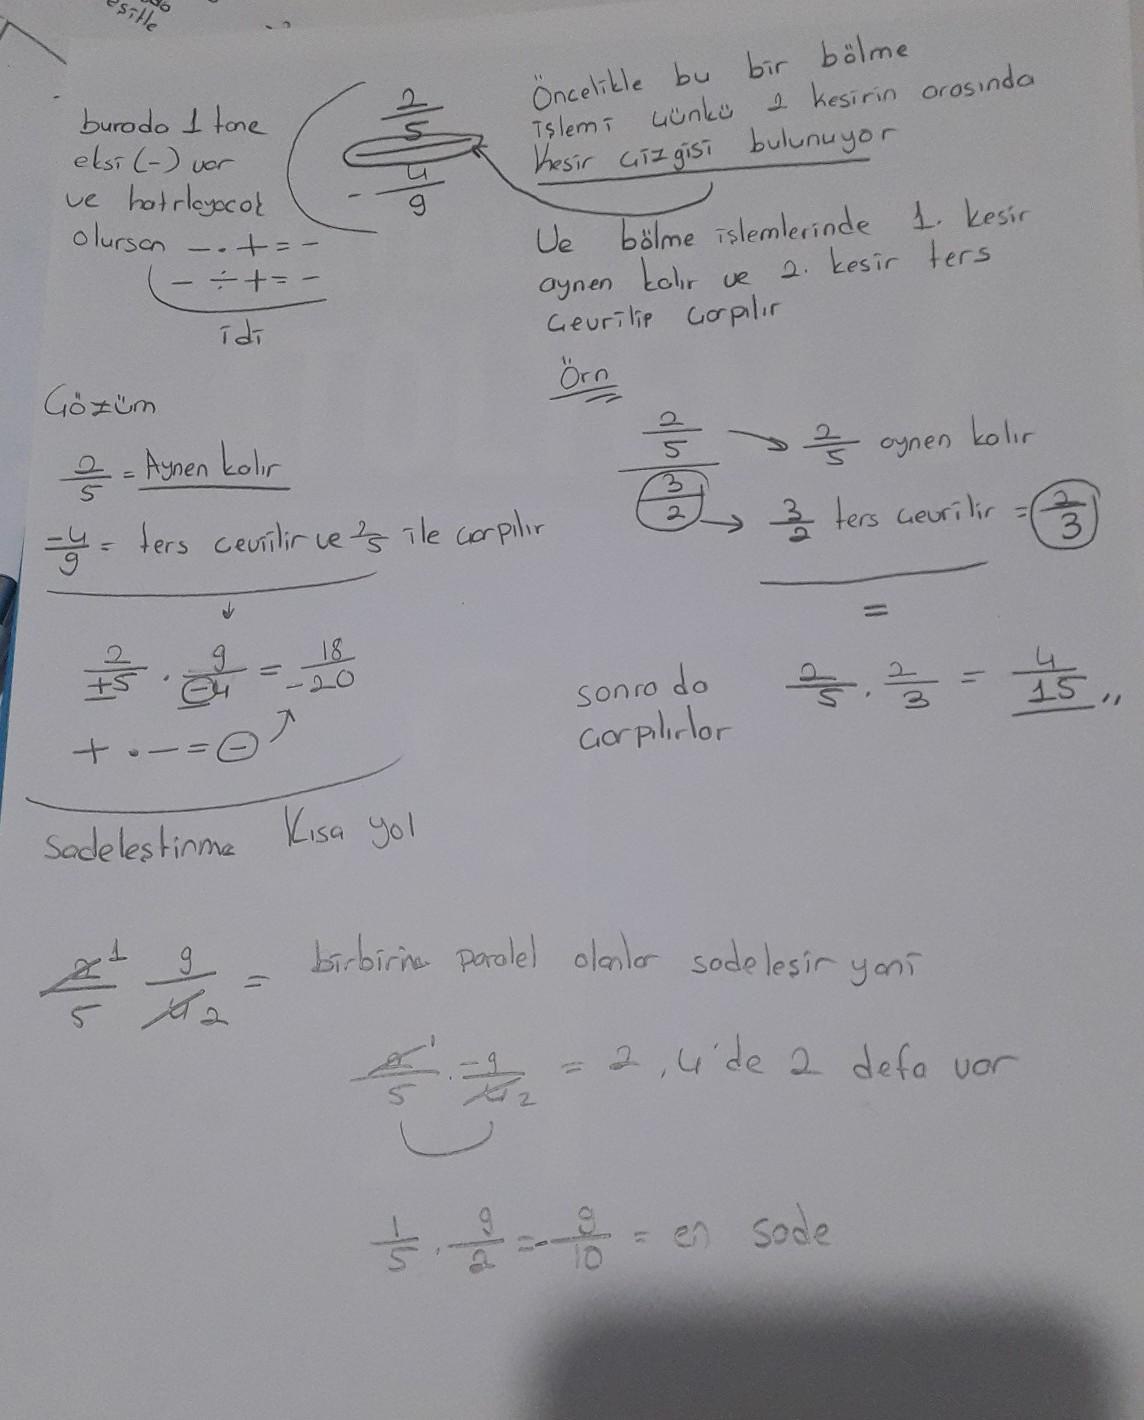 esitle
burada 1 tane
eksi (-) var
ve hatırlayacak
olursan - . + = -
- ÷ + = -
idi
2/5
- 4/9
Öncelikle bu bir bölme
işlemi çünkü 2 kesirin arasında
kesir çizgisi bulunuyor
Ve bölme işlemlerinde 1. kesir
aynen kalır ve 2. kesir ters
çevrilip çarpılır
Çözüm
2/5 = Aynen kalır
-4/9 = ters cevrilir ve 2/5 ile çarpılır
2/+5 . 9/-4 = 18/-20
+ . - = -
Örn
2/5 → 2/5 aynen kalır
3/2 → 3/2 ters çevrilir = 2/3
=
sonra da
çarpılırlar
2/5 . 2/3 = 4/15 ,,
Sadeleştirme Kısa yol
2 1/5 9/4 2 = birbirine paralel olanlar sadeleşir yani
2 1/5 . -9/4 2 = 2, 4'de 2 defa var
1/5 . 9/2 = - 9/10 = en sade